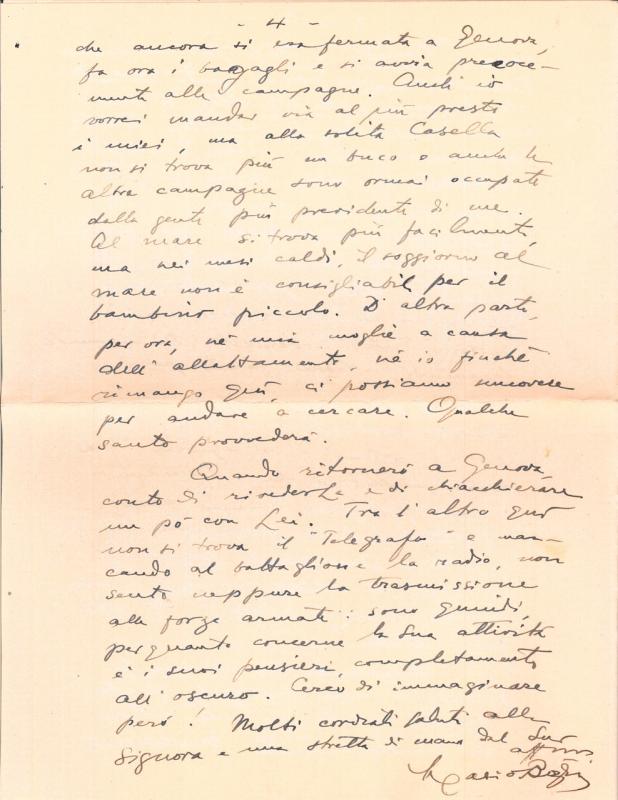 - 4 -
che ancora si era fermata a Genova,
fa ora i bagagli e si avvia precoce-
mente alle campagne. Anch'io
vorrei mandar via al più presto
i miei, ma alla solita Casella
non si trova più un buco e anche le
altre campagne sono ormai occupate
dalla gente più previdente di me.
Al mare si trova più facilmente,
ma nei mesi caldi, il soggiorno al
mare non è consigliabile per il
bambino piccolo. D'altra parte,
per ora, nè mia moglie a causa
dell'allattamento, nè io finchè
rimango quì, ci possiamo muovere
per andare a cercare. Qualche
santo provvederà.
Quando ritornerò a Genova,
conto di rivederLa e di chiacchierare
un pò con Lei. Tra l'altro quì
non si trova il "Telegrafo" e man-
cando al battaglione la radio, non
sento neppure la trasmissione
alle forze armate: sono quindi,
per quanto concerne la Sua attività
e i suoi pensieri, completamente
all'oscuro. Cerco di immaginare
però! Molti cordiali saluti alla
Signora e una stretta di mano dal Suo
aff.mo
Mario